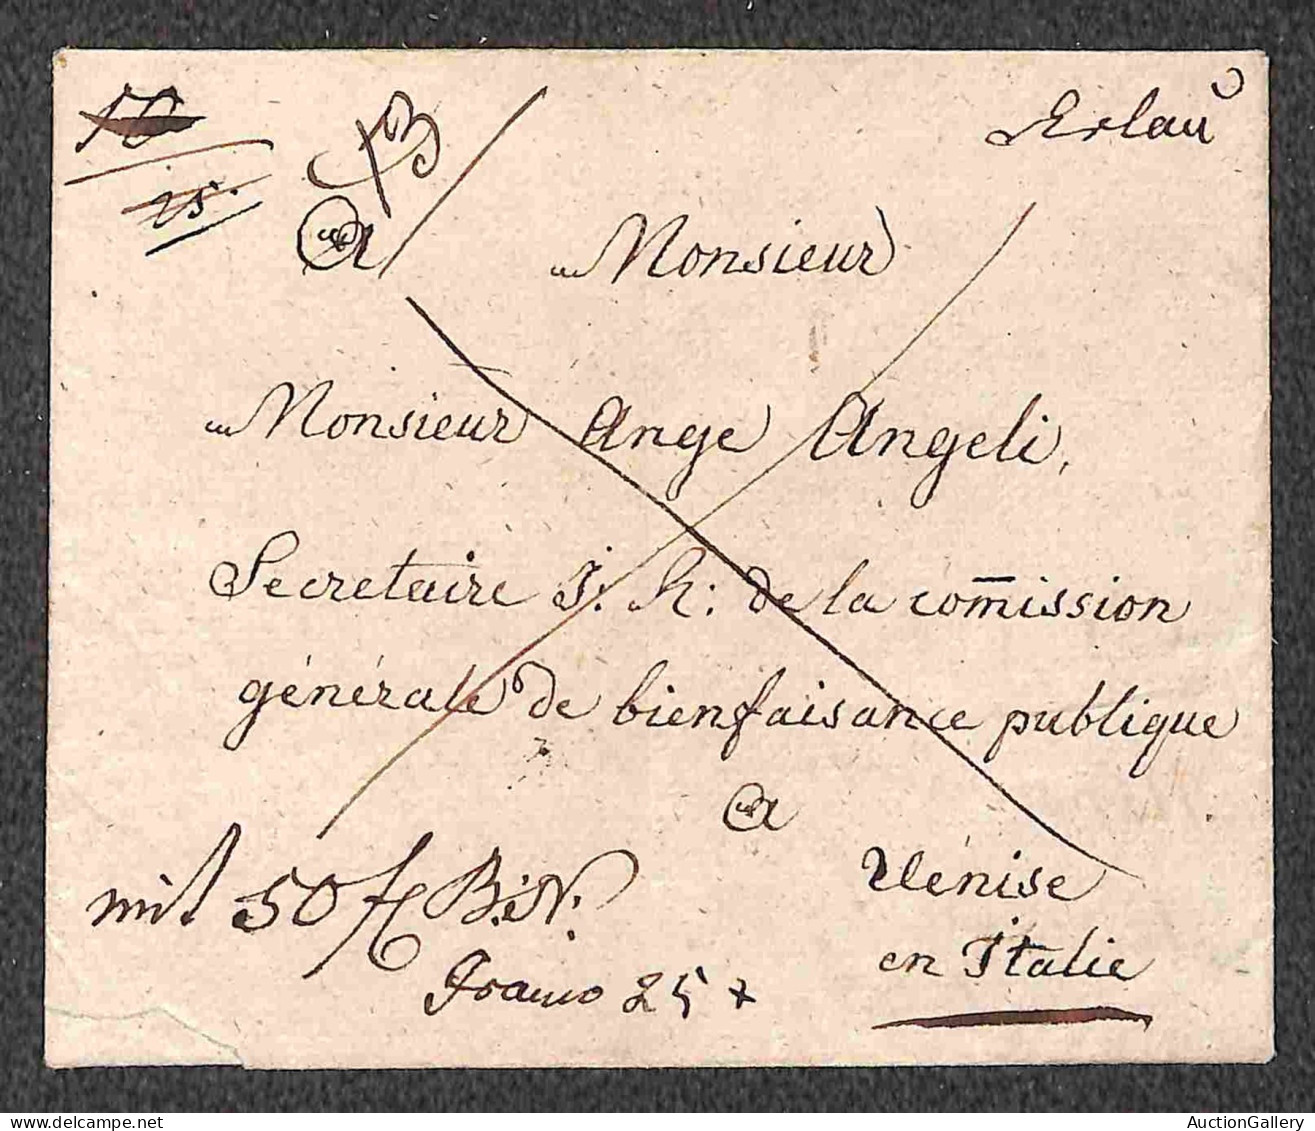 50
Erlau
25.
a
Monsieur
Monsieur Ange Angeli,
Secretaire I: R: de la com̅ission
générale de bienfaisance publique
a
Venise
en Italie
mit 50 f B: N:
Franco 25 x
AuctionGallery